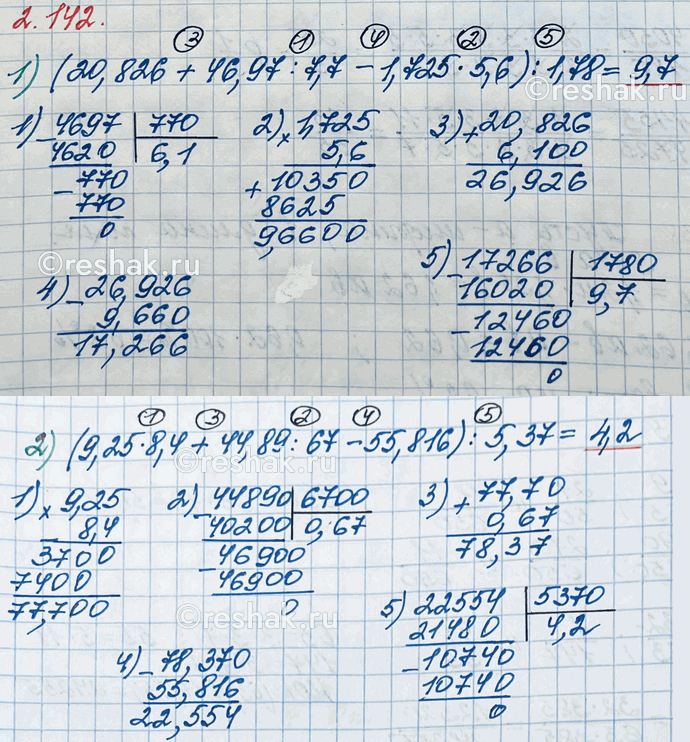 2.142.
③ ① ④ ② ⑤
1) (20,826 + 46,97 : 7,7 − 1,725 · 5,6) : 1,78 = 9,7
1) − 4697 | 770
4620 | 6,1
− 770
770
0
2) × 1,725
5,6
+ 10350
8625
9,6600
3) + 20,826
6,100
26,926
4) − 26,926
9,660
17,266
5) − 17266 | 1780
16020 | 9,7
− 12460
12460
0
© reshak.ru
① ③ ② ④ ⑤
2) (9,25 · 8,4 + 44,89 : 67 − 55,816) : 5,37 = 4,2
1) × 9,25
8,4
3700
7400
77,700
2) − 44890 | 6700
40200 | 0,67
− 46900
46900
0
3) + 77,70
0,67
78,37
4) − 78,370
55,816
22,554
5) 22554 | 5370
21480 | 4,2
− 10740
10740
0
© reshak.ru